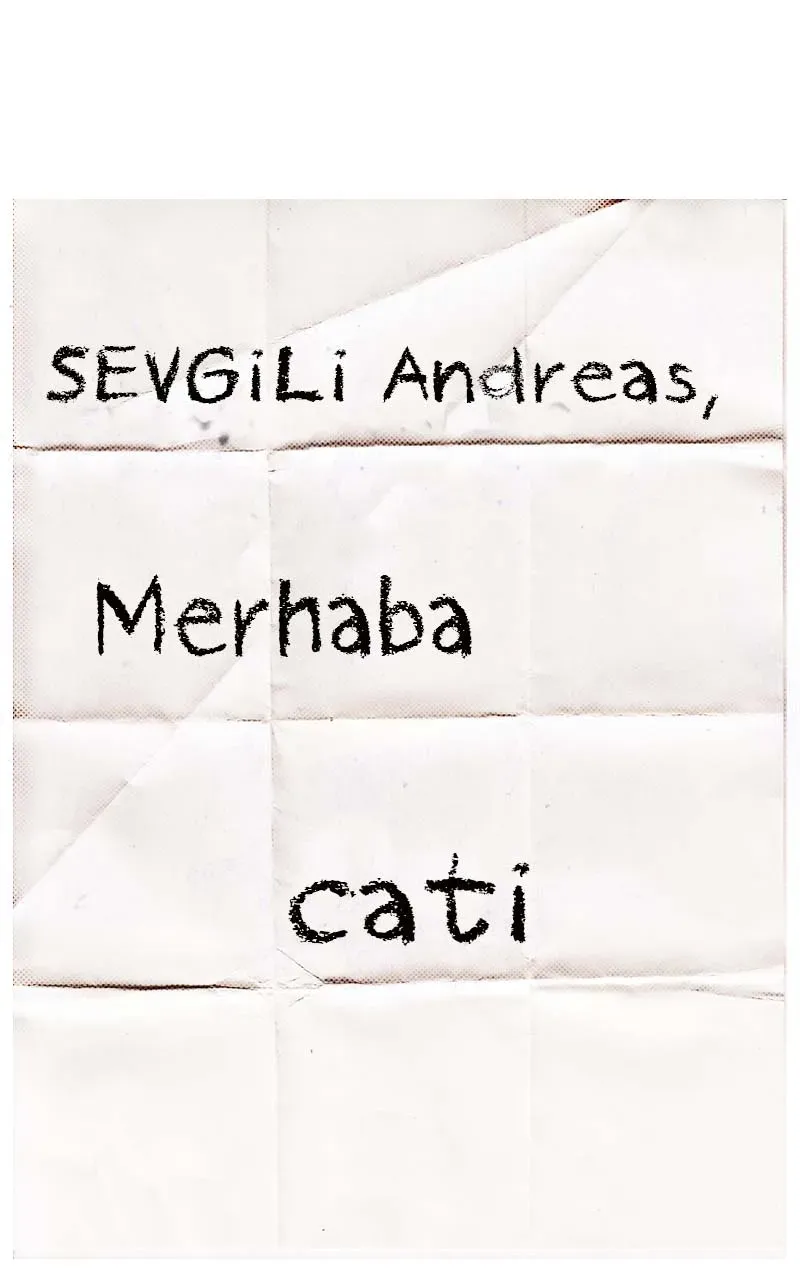 SEVGiLi Andreas,
Merhaba
cati